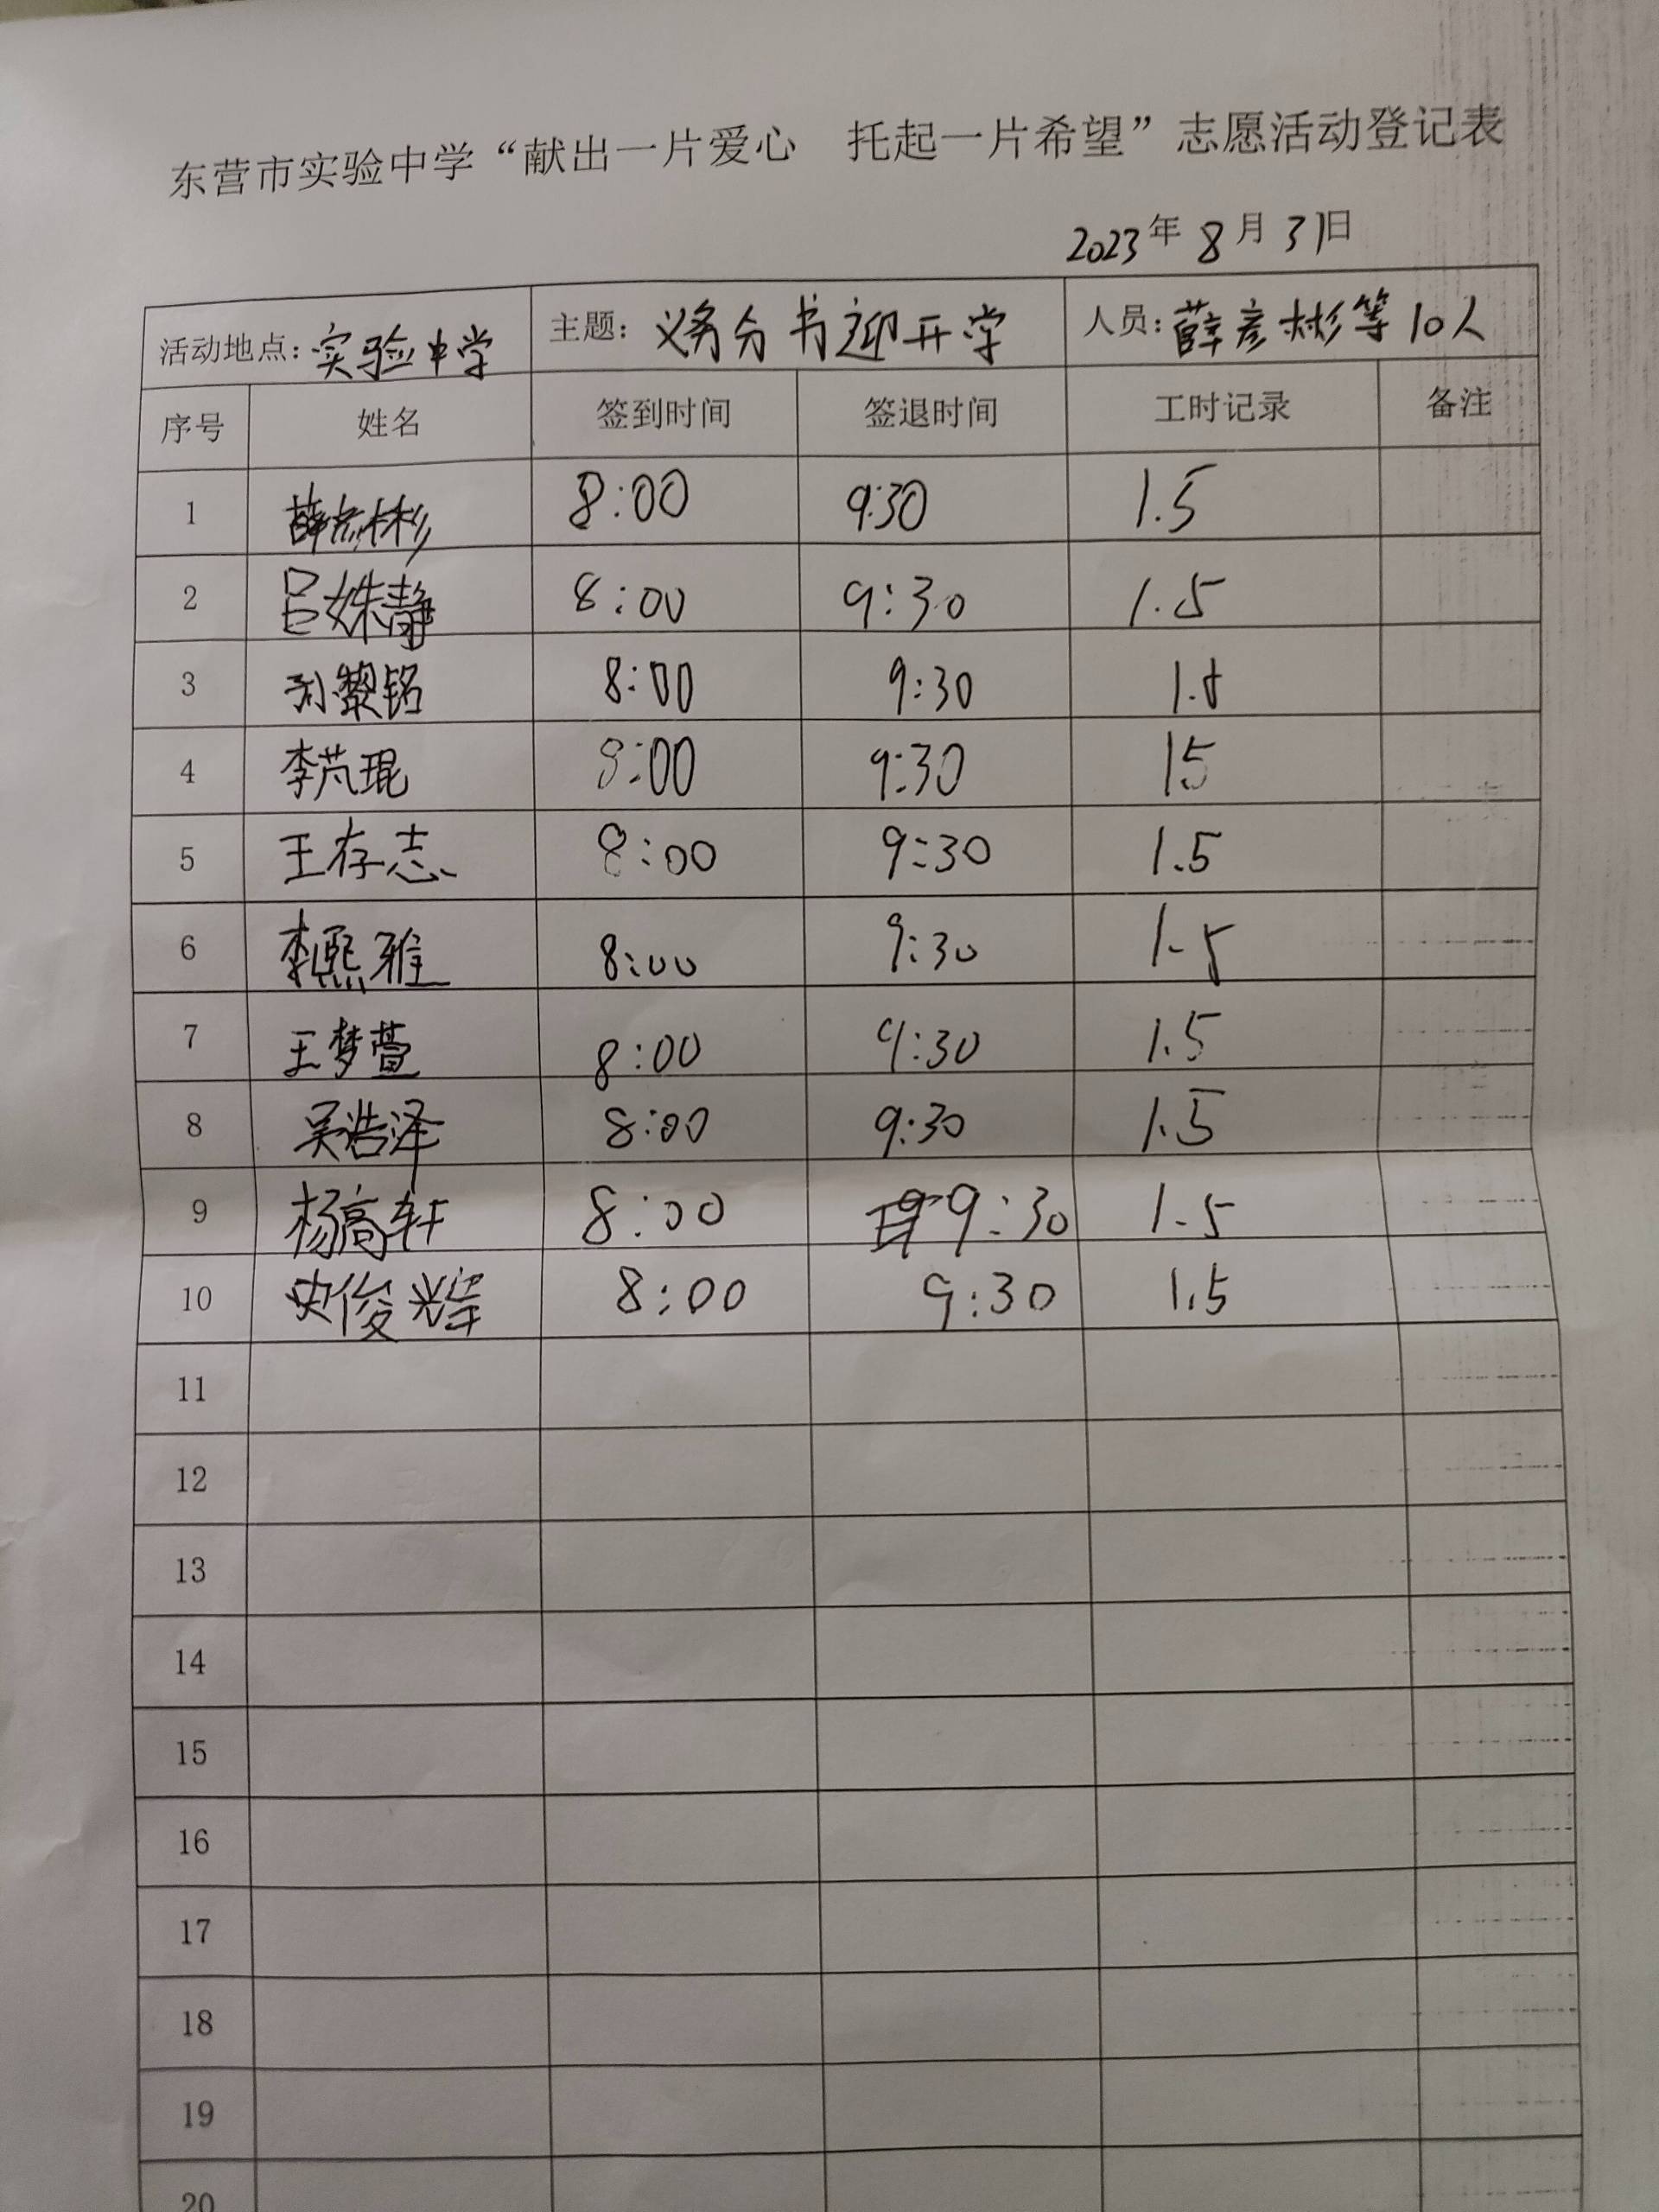 东营市实验中学“献出一片爱心 托起一片希望”志愿活动登记表
2023年8月31日
活动地点：实验中学 主题：义务分书迎开学 人员：薛彦彬等10人
序号 姓名 签到时间 签退时间 工时记录 备注
1 薛彦彬 8:00 9:30 1.5
2 吕姝静 8:00 9:30 1.5
3 刘黎铭 8:00 9:30 1.5
4 李芃琨 8:00 9:30 15
5 王存志 8:00 9:30 1.5
6 李熙雅 8:00 9:30 1.5
7 王梦萱 8:00 9:30 1.5
8 吴浩泽 8:00 9:30 1.5
9 杨高轩 8:00 9:30 1.5
10 史俊辉 8:00 9:30 1.5
11
12
13
14
15
16
17
18
19
20